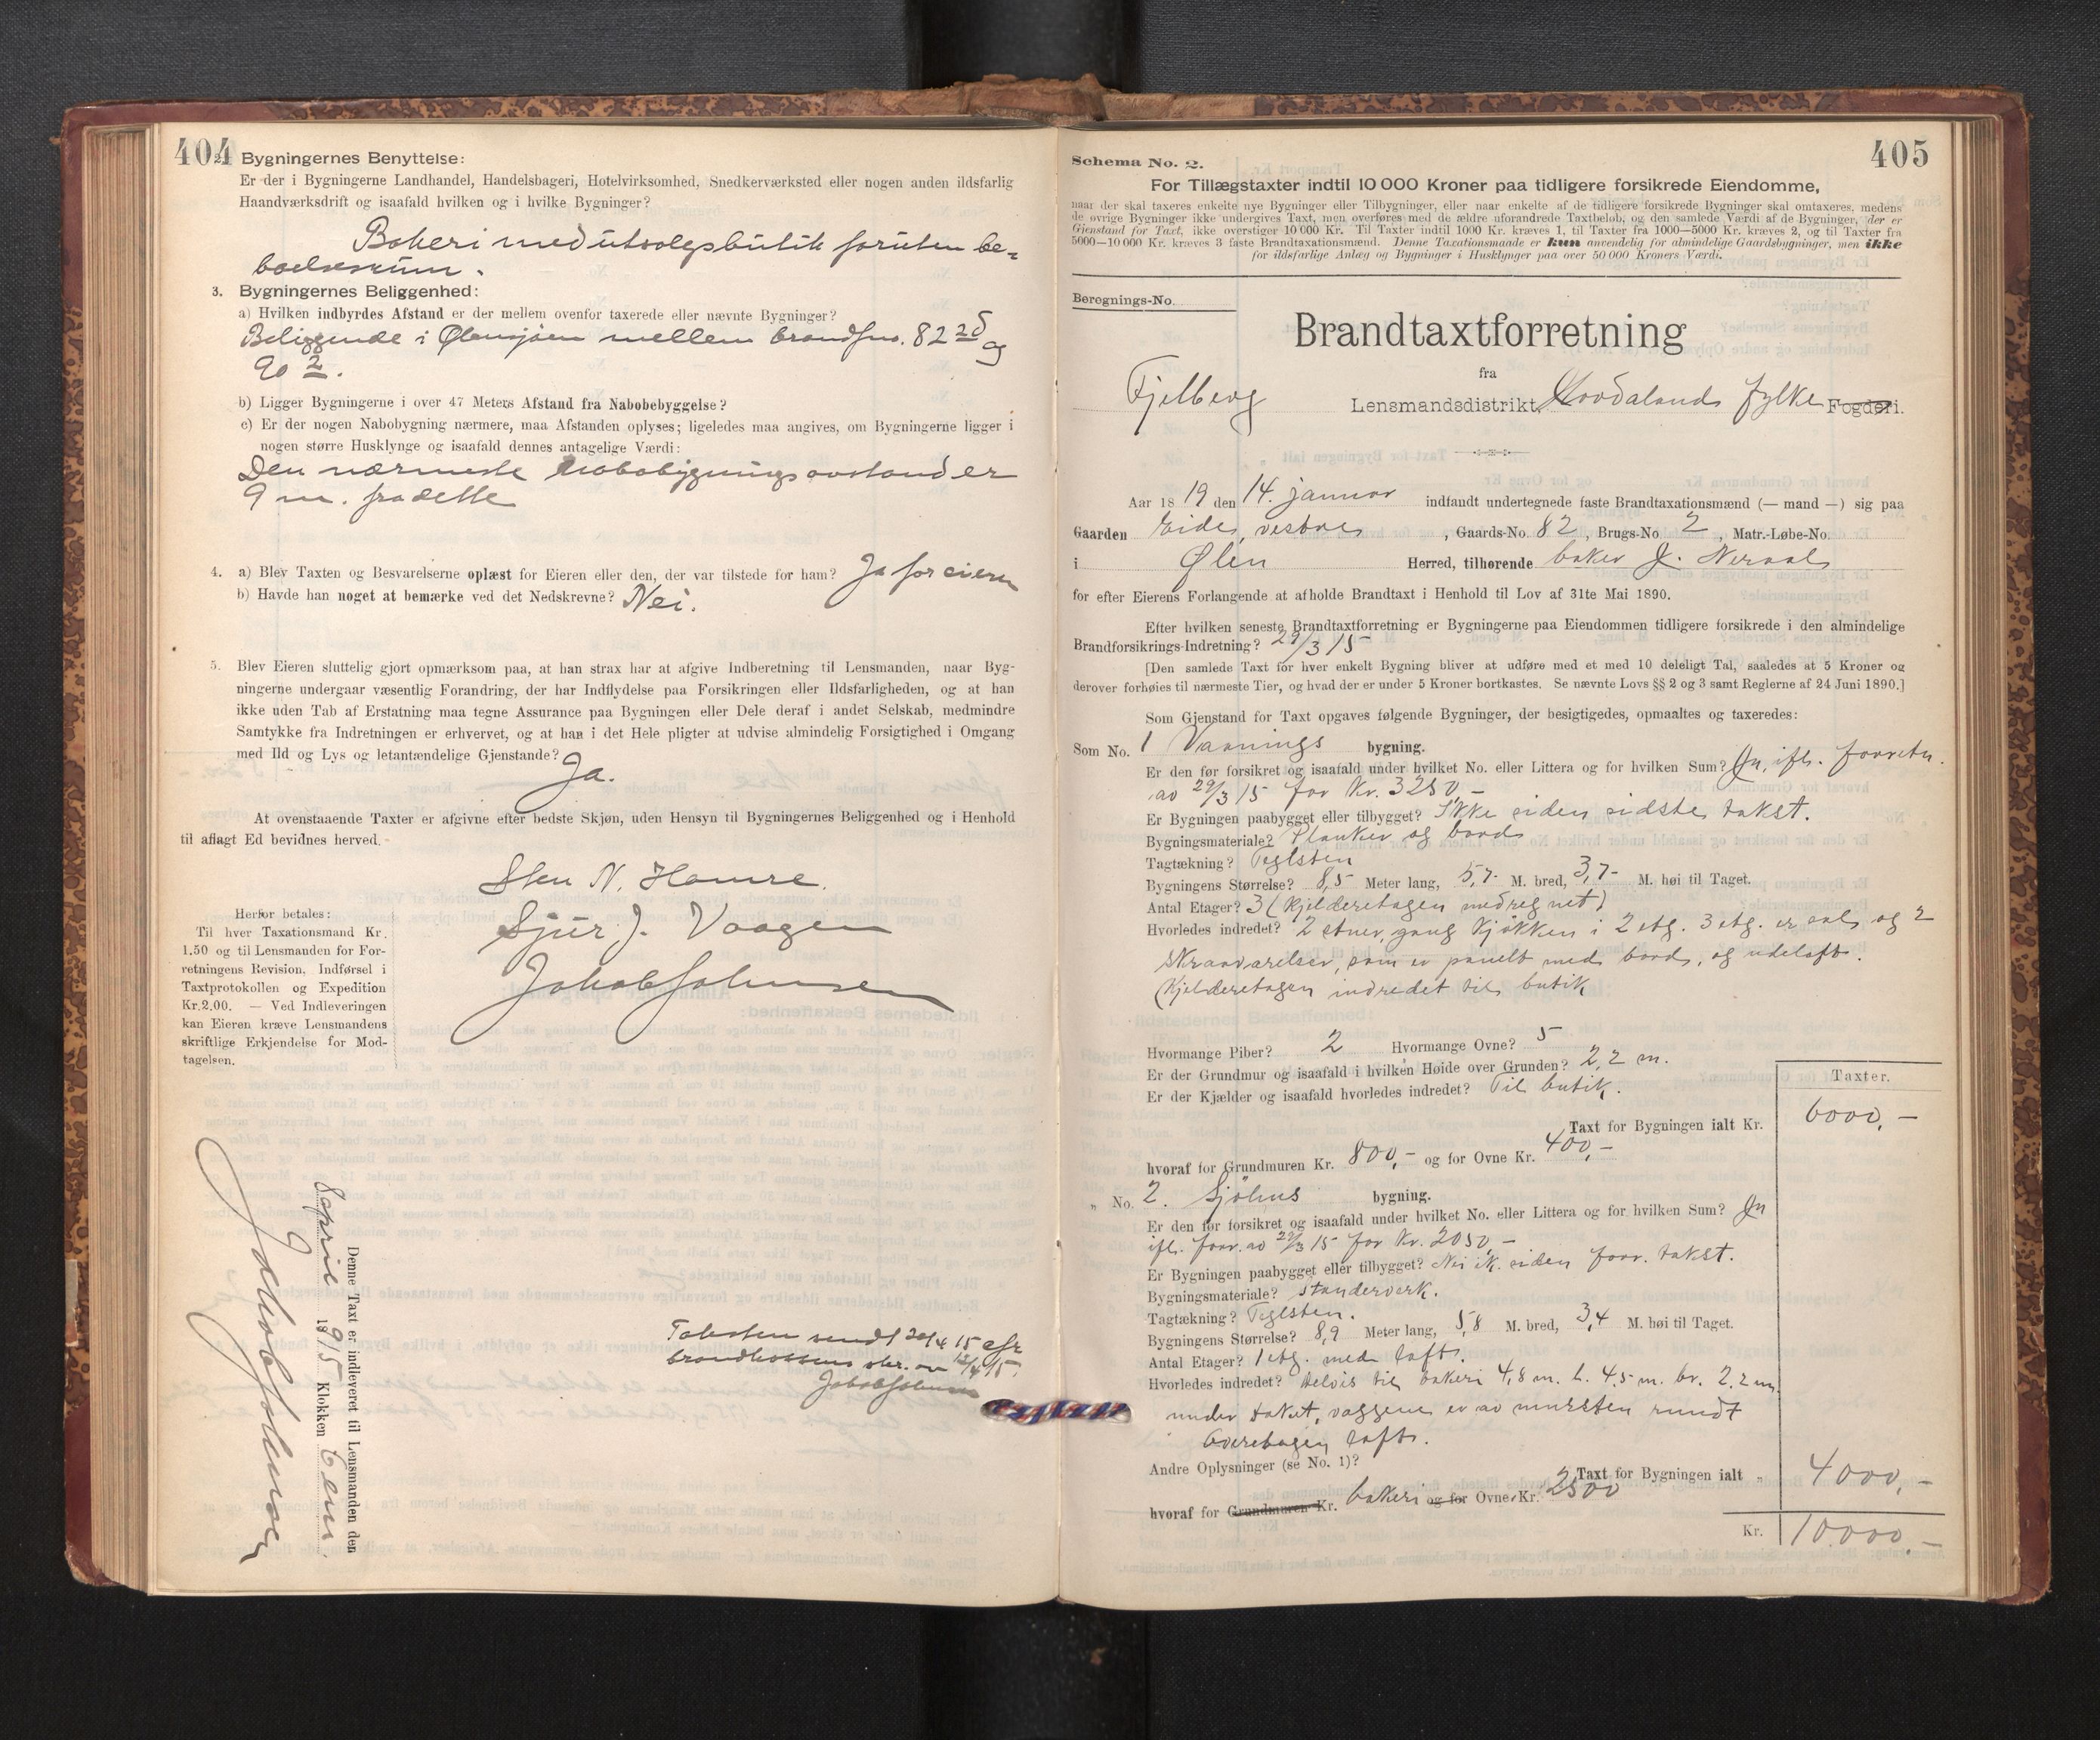 404
2. Bygningernes Benyttelse:
Er der i Bygningerne Landhandel, Handelsbageri, Hotelvirksomhed, Snedkerværksted eller nogen anden ildsfarlig
Haandværksdrift og isaafald hvilken og i hvilke Bygninger?
Bakeri med utsalgsbutik foruten be-
boelsesrum.
3. Bygningernes Beliggenhed:
a) Hvilken indbyrdes Afstand er der mellem ovenfor taxerede eller nævnte Bygninger?
Beliggende i Ølensjøen mellem brandfno. 82 25 og
90 2.
b) Ligger Bygningerne i over 47 Meters Afstand fra Nabobebyggelse?
c) Er der nogen Nabobygning nærmere, maa Afstanden oplyses; ligeledes maa angives, om Bygningerne ligger i
nogen større Husklynge og isaafald dennes antagelige Værdi:
Den nærmeste nabobygnings avstand er
9 m. fra dette
4. a) Blev Taxten og Besvarelserne oplæst for Eieren eller den, der var tilstede for ham? Ja for eieren
b) Havde han noget at bemærke ved det Nedskrevne? Nei.
5. Blev Eieren sluttelig gjort opmærksom paa, at han strax har at afgive Indberetning til Lensmanden, naar Byg-
ningerne undergaar væsentlig Forandring, der har Indflydelse paa Forsikringen eller Ildsfarligheden, og at han
ikke uden Tab af Erstatning maa tegne Assurance paa Bygningen eller Dele deraf i andet Selskab, medmindre
Samtykke fra Indretningen er erhvervet, og at han i det Hele pligter at udvise almindelig Forsigtighed i Omgang
med Ild og Lys og letantændelige Gjenstande? Ja.
At ovenstaaende Taxter er afgivne efter bedste Skjøn, uden Hensyn til Bygningernes Beliggenhed og i Henhold
til aflagt Ed bevidnes herved.
Sten N. Hamre.
Sjur J. Vaagen
Jakob Johnsen
Herfor betales:
Til hver Taxationsmand Kr.
1.50 og til Lensmanden for For-
retningens Revision, Indførsel i
Taxtprotokollen og Expedition
Kr. 2.00. — Ved Indleveringen
kan Eieren kræve Lensmandens
skriftlige Erkjendelse for Mod-
tagelsen.
Denne Taxt er indleveret til Lensmanden den
8 april 1915 Klokken 6 em.
Jakob Johnsen
Taksten sendt 20/4 15 efr
brandkassens skr. av 12/4 15.
Jakob Johnsen
405
Schema No. 2.
For Tillægstaxter indtil 10 000 Kroner paa tidligere forsikrede Eiendomme,
naar der skal taxeres enkelte nye Bygninger eller Tilbygninger, eller naar enkelte af de tidligere forsikrede Bygninger skal omtaxeres, medens
de øvrige Bygninger ikke undergives Taxt, men overføres med de ældre uforandrede Taxtbeløb, og den samlede Værdi af de Bygninger, der er
Gjenstand for Taxt, ikke overstiger 10 000 Kr. Til Taxter indtil 1000 Kr. kræves 1, til Taxter fra 1000—5000 Kr. kræves 2, og til Taxter fra
5000—10 000 Kr. kræves 3 faste Brandtaxationsmænd. Denne Taxationsmaade er kun anvendelig for almindelige Gaardsbygninger, men ikke
for ildsfarlige Anlæg og Bygninger i Husklynger paa over 50 000 Kroners Værdi.
Beregnings-No.
Brandtaxtforretning
fra
Fjelberg Lensmandsdistrikt, Hordalands fylke Fogderi.
Aar 18 19 den 14. januar indfandt undertegnede faste Brandtaxationsmænd (— mand —) sig paa
Gaarden Eide, vestre, Gaards-No. 82, Brugs-No. 2, Matr.-Løbe-No.
i Ølen Herred, tilhørende baker J. Neraal
for efter Eierens Forlangende at afholde Brandtaxt i Henhold til Lov af 31te Mai 1890.
Efter hvilken seneste Brandtaxtforretning er Bygningerne paa Eiendommen tidligere forsikrede i den almindelige
Brandforsikrings-Indretning? 29/3 15
[Den samlede Taxt for hver enkelt Bygning bliver at udføre med et med 10 deleligt Tal, saaledes at 5 Kroner og
derover forhøies til nærmeste Tier, og hvad der er under 5 Kroner bortkastes. Se nævnte Lovs §§ 2 og 3 samt Reglerne af 24 Juni 1890.]
Som Gjenstand for Taxt opgaves følgende Bygninger, der besigtigedes, opmaaltes og taxeredes:
Som No. 1 Vaanings bygning.
Er den før forsikret og isaafald under hvilket No. eller Littera og for hvilken Sum? Ja, ifl. forretn.
av 29/3 15 for Kr. 3250,-
Er Bygningen paabygget eller tilbygget? Ikke siden sidste takst.
Bygningsmateriale? Planker og bord
Tagtækning? Teglsten
Bygningens Størrelse? 8,5 Meter lang, 5,7 M. bred, 3,7 M. høi til Taget.
Antal Etager? 3 (kjelderetagen medregnet)
Hvorledes indredet? 2 stuer, gang kjøkken i 2 etg. 3 etg. er sal og 2
skraavarelser, som er panelt med bord, og udeloft.
(Kjelderetagen indredet til butik
Hvormange Piber? 2 Hvormange Ovne? 5
Er der Grundmur og isaafald i hvilken Høide over Grunden? 2,2 m.
Er der Kjælder og isaafald hvorledes indredet? Til butik.
Taxter.
Taxt for Bygningen ialt Kr. 6000,-
hvoraf for Grundmuren Kr. 800,- og for Ovne Kr. 400,-
„ No. 2. Sjøhus bygning.
Er den før forsikret og isaafald under hvilket No. eller Littera og for hvilken Sum? Ja
ifl. forr. av 29/3 15 for Kr. 2050,-
Er Bygningen paabygget eller tilbygget? Nei ik. siden forr. takst.
Bygningsmateriale? standerverk.
Tagtækning? Teglsten.
Bygningens Størrelse? 8,9 Meter lang, 5,8 M. bred, 3,4 M. høi til Taget.
Antal Etager? 1 etg. med loft.
Hvorledes indredet? Delvis til bakeri 4,8 m. l. 4,5 m. br. 2,2 m.
under taket, væggene er av mursten rundt
Overetagen loft.
Andre Oplysninger (se No. 1)?
Taxt for Bygningen ialt „ 4000,-
hvoraf for Grundmuren Kr. bakeri og for Ovne Kr. 2500
Kr. 10000,-